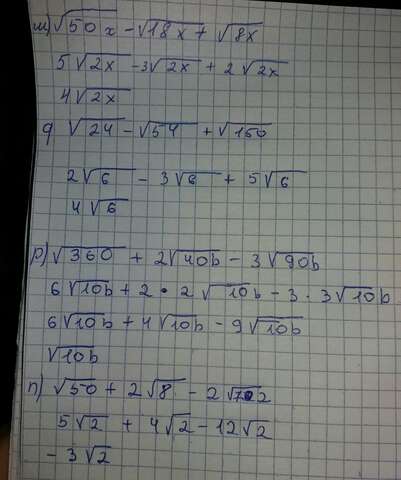 м) √50x - √18x + √8x
5√2x - 3√2x + 2√2x
4√2x
g √24 - √54 + √150
2√6 - 3√6 + 5√6
4√6
p) √360 + 2√40b - 3√90b
6√10b + 2 · 2√10b - 3 · 3√10b
6√10b + 4√10b - 9√10b
√10b
п) √50 + 2√8 - 2√72
5√2 + 4√2 - 12√2
- 3√2